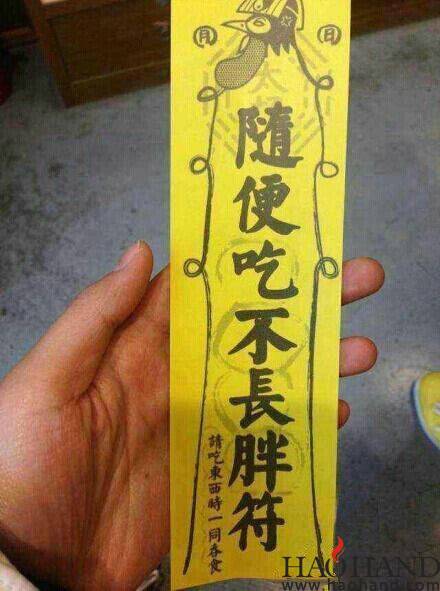 月
日
隨便吃不長胖符
請吃東西時一同吞食
HAOHAND
www.haohand.com